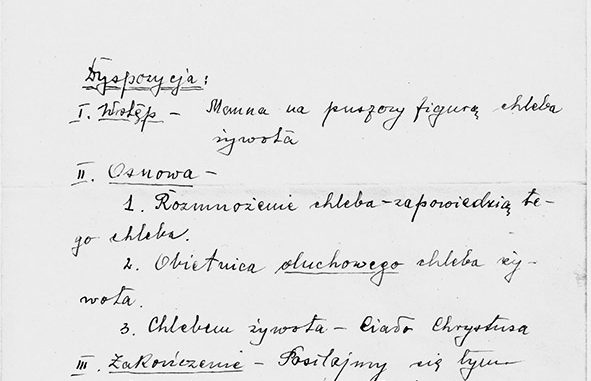 Dyspozycja:
I. Wstęp - Manna na puszczy figurą chleba
żywota
II. Osnowa -
1. Rozmnożenie chleba - zapowiedzią te-
go chleba.
2. Obietnica duchowego chleba ży-
wota.
3. Chlebem żywota - Ciało Chrystusa
III. Zakończenie - Posilajmy się tym